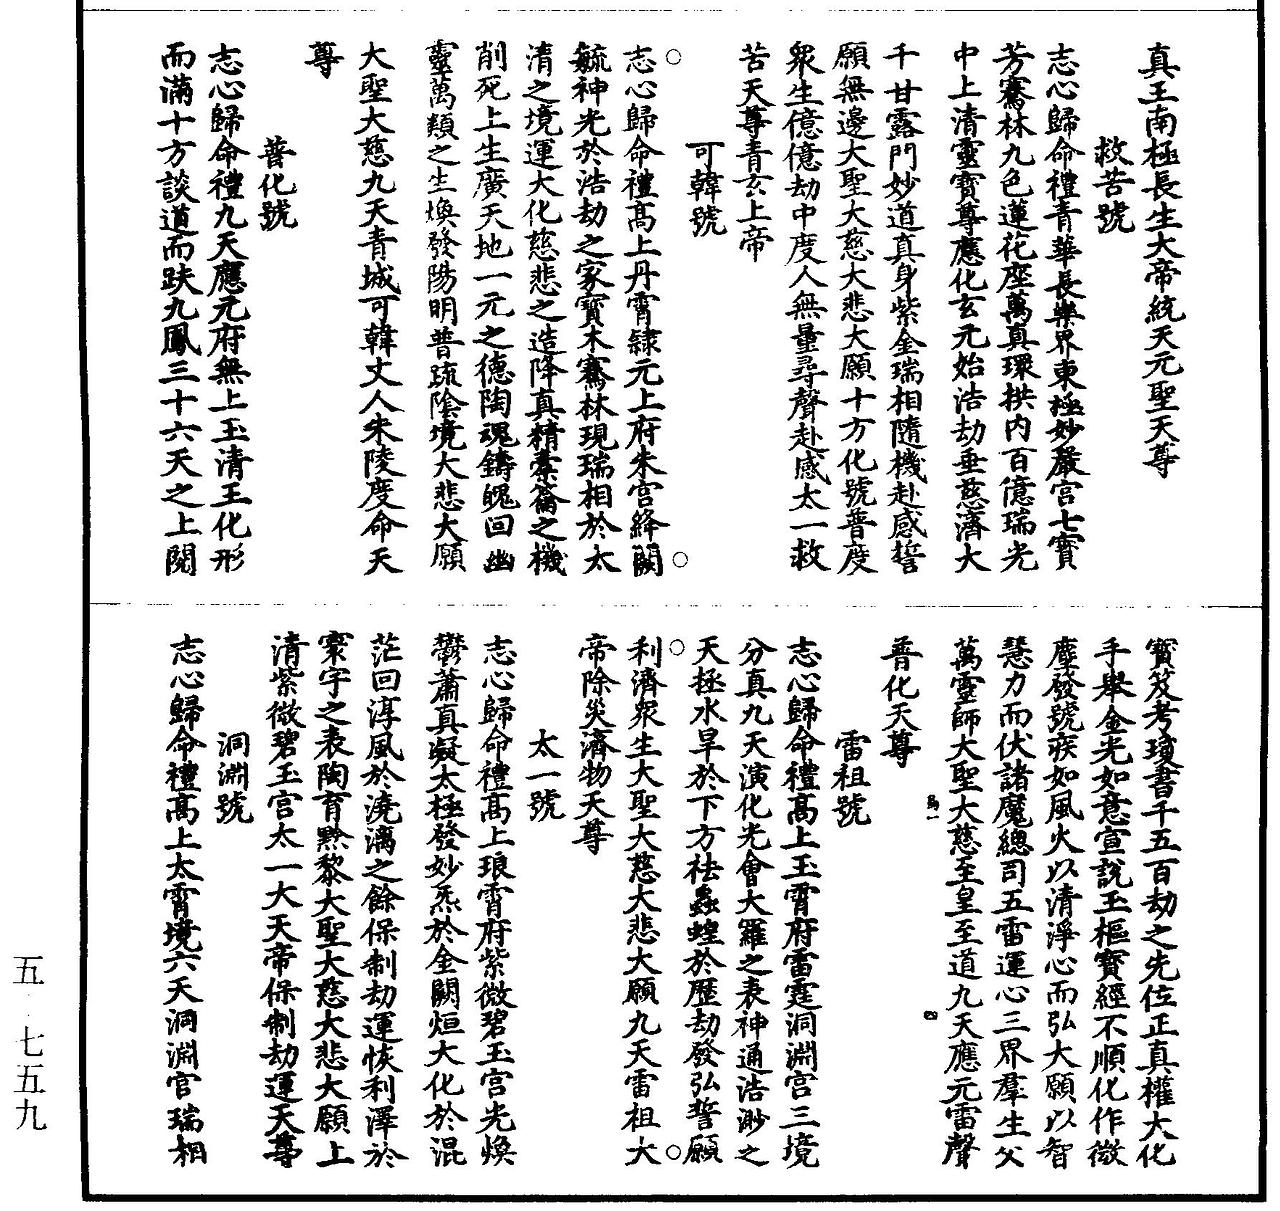 真王南極長生大帝統天元聖天尊
救苦號
志心歸命禮青華長樂界東極妙嚴宮七寶
芳騫林九色蓮花座萬真環拱內百億瑞光
中上清靈寶尊應化玄元始浩劫垂慈濟大
千甘露門妙道真身紫金瑞相隨機赴感誓
願無邊大聖大慈大悲大願十方化號普度
衆生億億劫中度人無量尋聲赴感太一救
苦天尊青玄上帝
可韓號
志心歸命禮高上丹霄隸元上府朱宮絳闕
毓神光於浩劫之家寶木騫林現瑞相於太
清之境運大化慈悲之造降真精橐籥之機
削死上生廣天地一元之德陶魂鑄魄回幽
靈萬類之生煥發陽明普疏陰境大悲大願
大聖大慈九天青城可韓丈人朱陵度命天
尊
普化號
志心歸命禮九天應元府無上玉清王化形
而滿十方談道而趺九鳳三十六天之上閱
寶笈考瓊書千五百劫之先位正真權大化
手舉金光如意宣說玉樞寶經不順化作微
塵發號疾如風火以清淨心而弘大願以智
慧力而伏諸魔總司五雷運心三界羣生父
萬靈師大聖大慈至皇至道九天應元雷聲
普化天尊
四
雷祖號
志心歸命禮高上玉霄府雷霆洞淵宮三境
分真九天演化光會大羅之表神通浩渺之
天拯水旱於下方祛蟲蝗於歷劫發弘誓願
利濟衆生大聖大慈大悲大願九天雷祖大
帝除災濟物天尊
太一號
志心歸命禮高上琅霄府紫微碧玉宮光煥
鬱蕭真凝太極發妙炁於金闕烜大化於混
茫回淳風於澆漓之餘保制劫運恢利澤於
寰宇之表陶育黔黎大聖大慈大悲大願上
清紫微碧玉宮太一大天帝保制劫運天尊
洞淵號
志心歸命禮高上太霄境六天洞淵宮瑞相
五·七五九